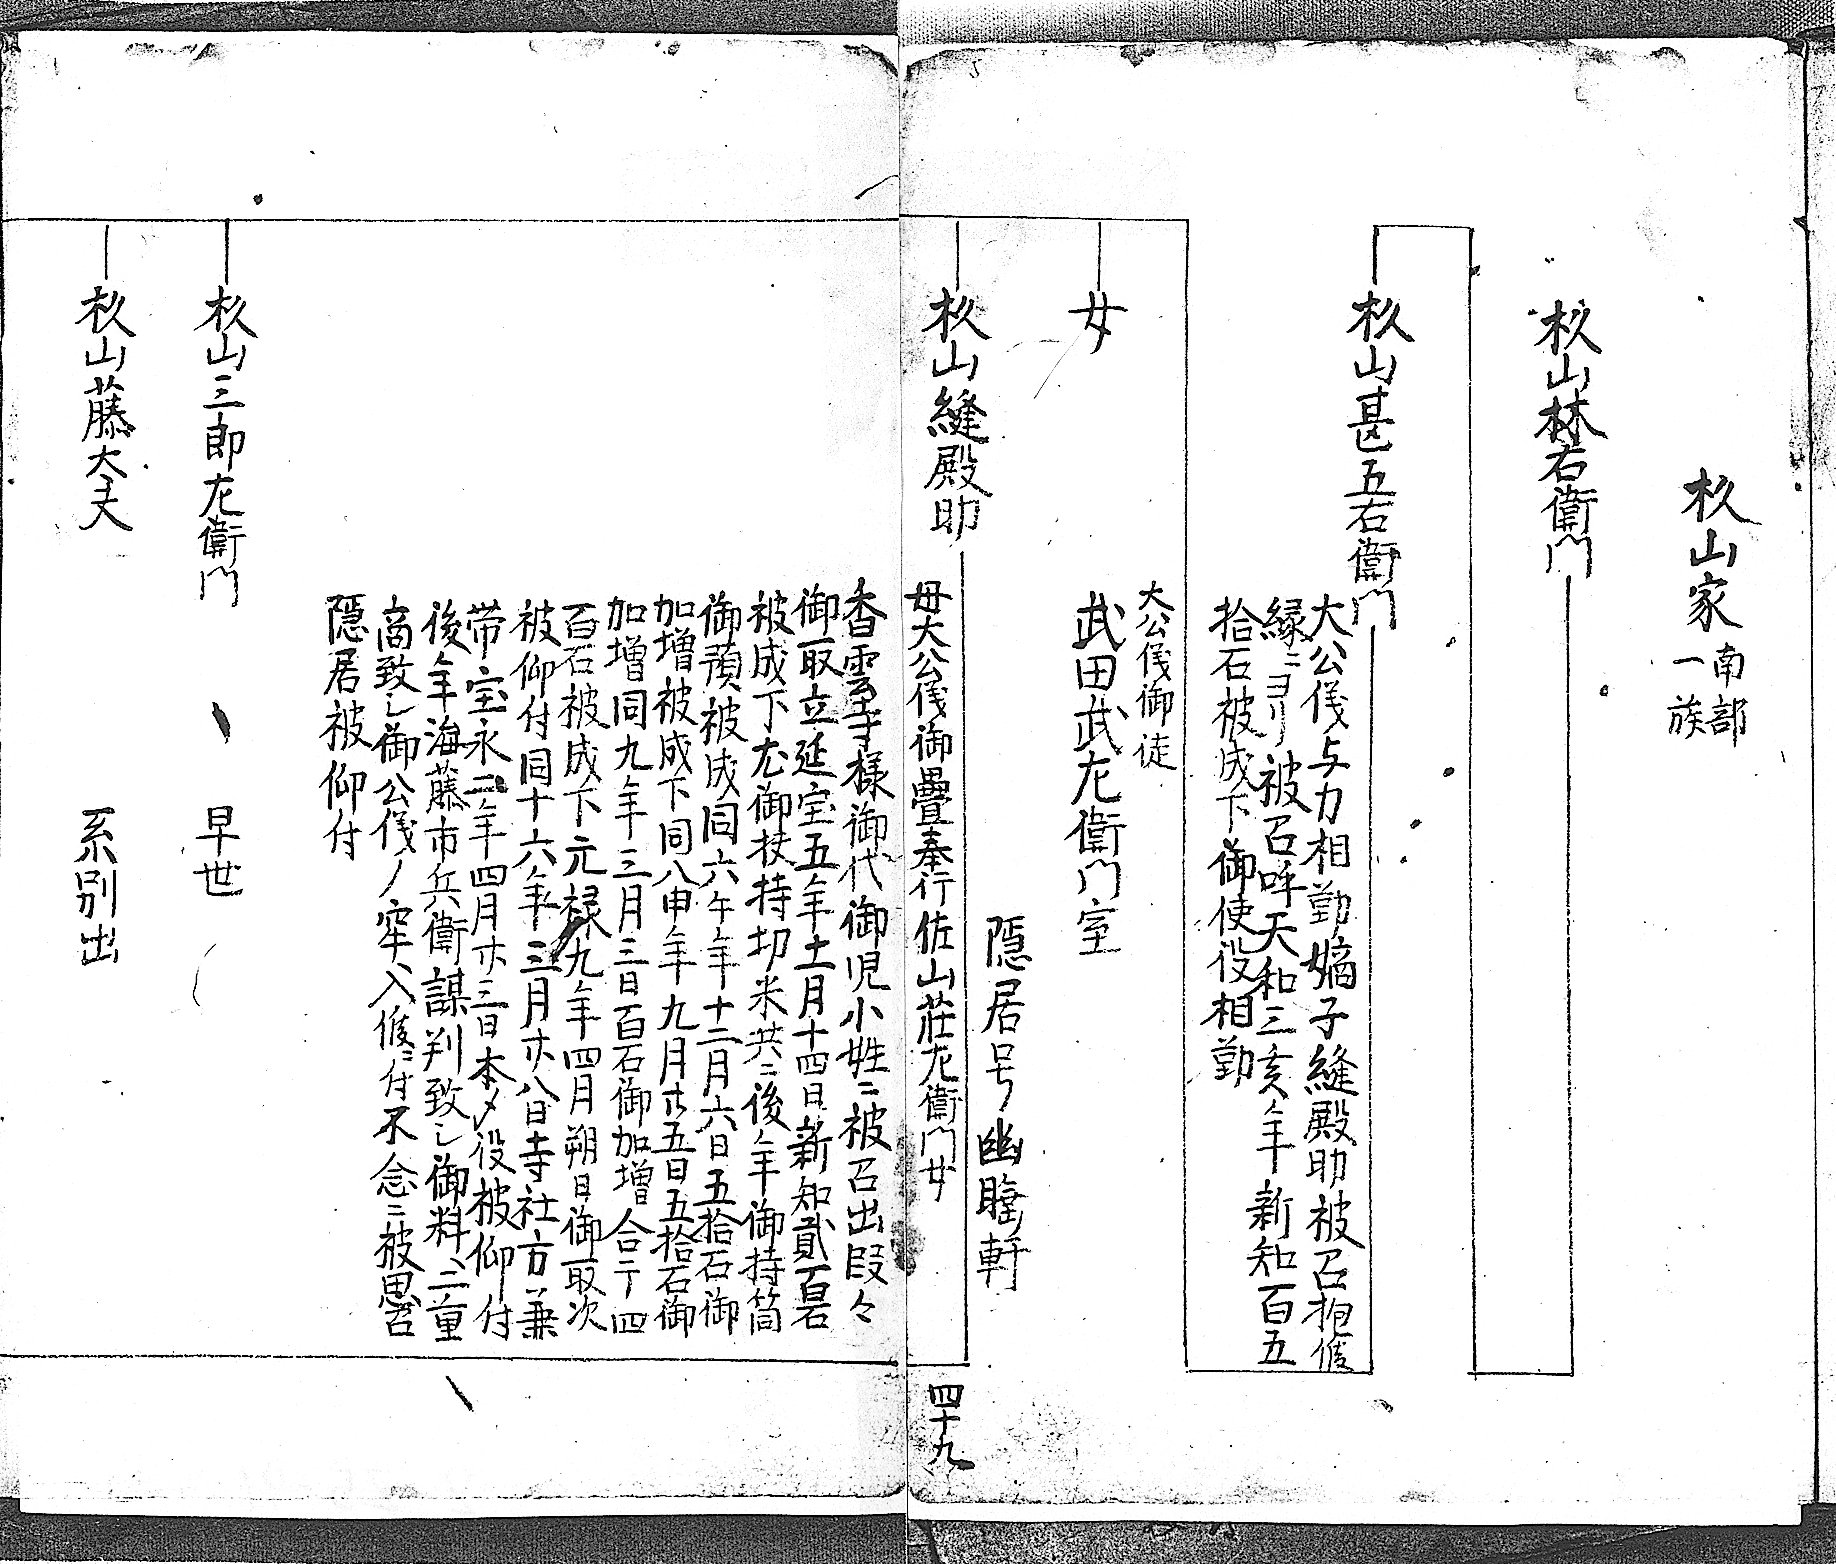 杦山家 南部一族
杦山林右衛門
杦山甚五右衛門
大公儀与力相勤嫡子縫殿助被召抱候
縁ニヨリ被召呼天和三亥年新知百五
拾石被成下御使役相勤
大公儀御徒
女 武田武左衛門室
隠居号幽 軒
杦山縫殿助
母大公儀御疊奉行佐山莊左衛門女
四十九
香雲寺様御代御児小姓ニ被召出段々
御取立延宝五年十一月十四日新知貳百石
被成下尤御扶持切米共ニ後年御持筒
御預被成同六午年十二月六日五拾石御
加増被成下同八申年九月廿五日五拾石御
加増同九年三月三日百石御加増合テ四
百石被成下元禄九年四月朔日御取次
被仰付同十六年三月廿八日寺社方兼
帯宝永二年四月廿三日本〆役被仰付
後年海藤市兵衛謀判致し御料ニ重
商致し御公儀ノ牢ヘ入候ニ付不念ニ被思召
隠居被仰付
杦山三郎左衛門 早世
杦山藤太夫 系別出